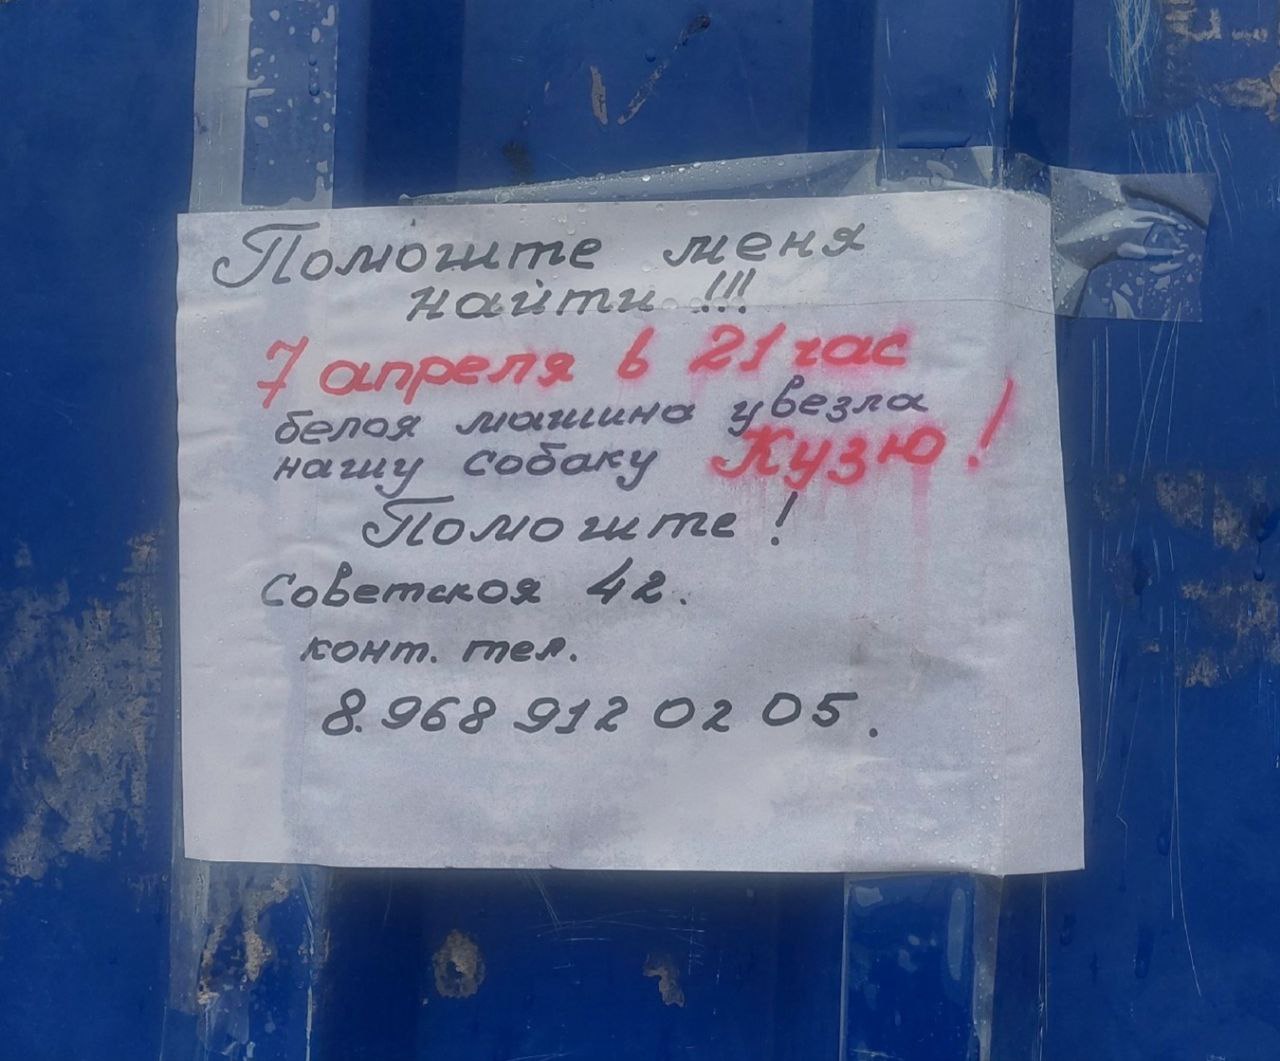 Помогите меня
найти !!!
7 апреля в 21 час
белая машина увезла
нашу собаку Кузю !
Помогите !
Советская 42.
конт. тел.
8.968 912 02 05.